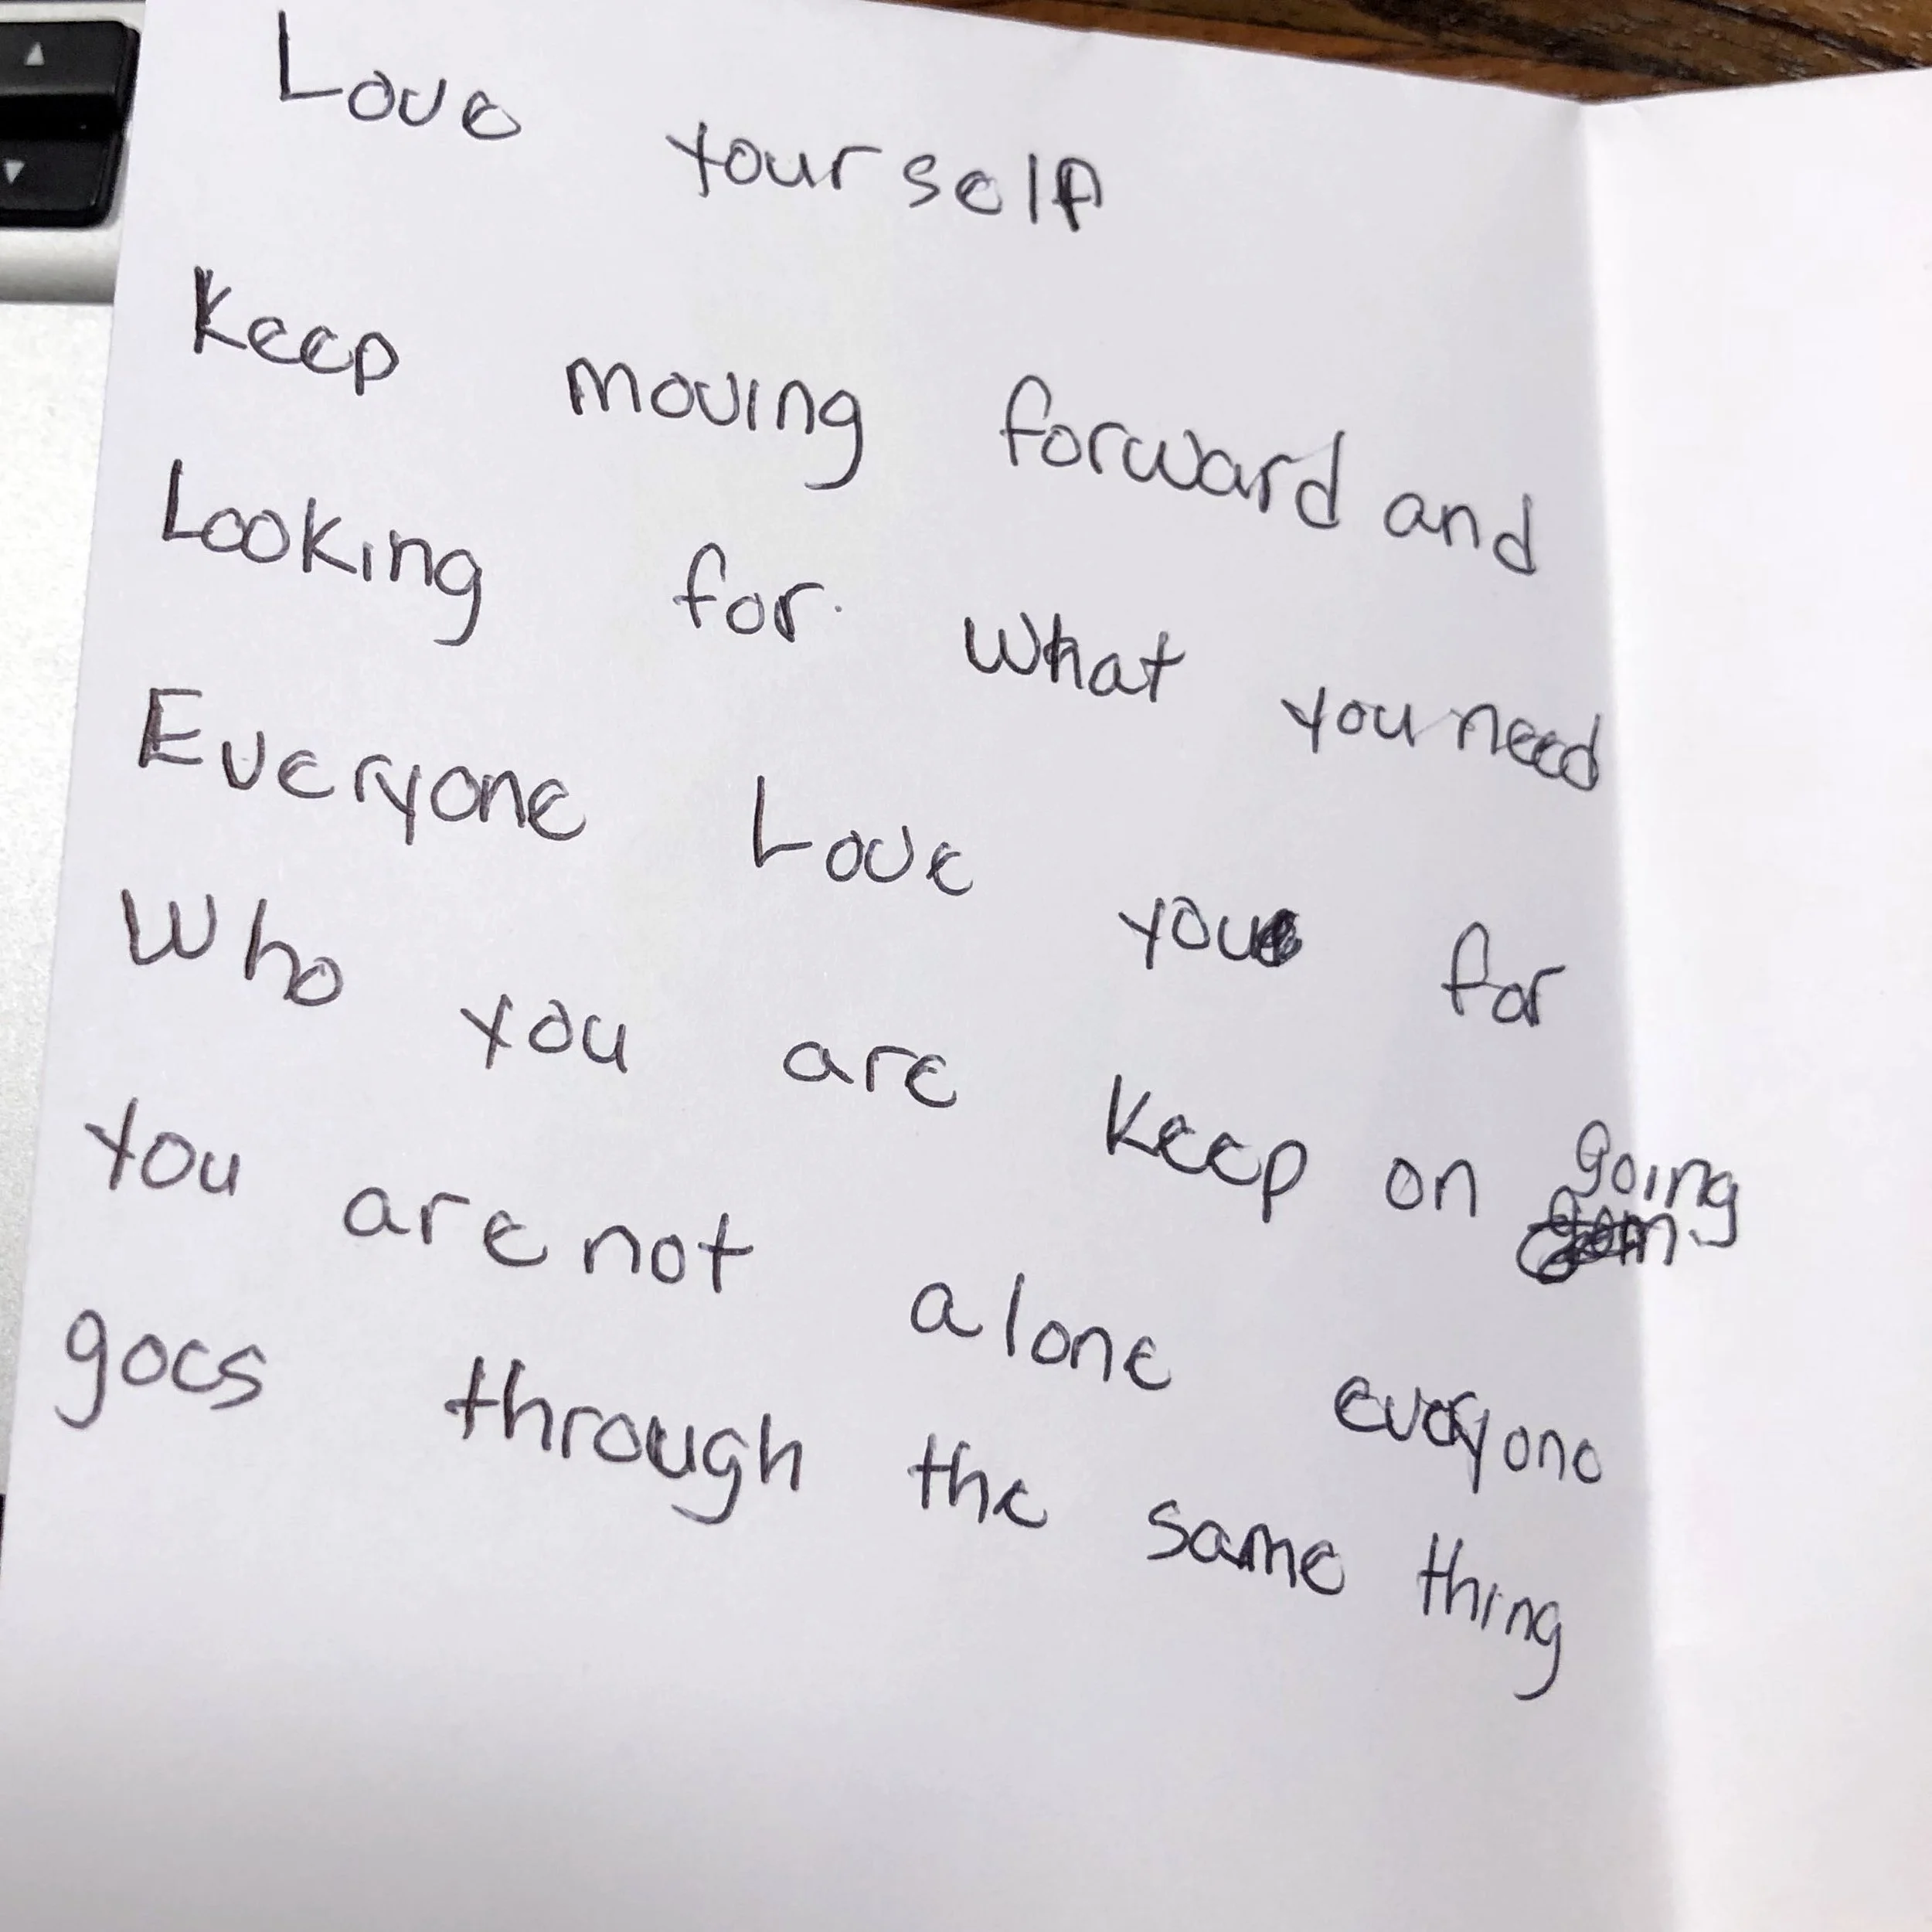 Love your self
Keep moving forward and
Looking for what you need
Everyone Love you for
Who you are Keep on going
You are not alone everyone
goes through the same thing